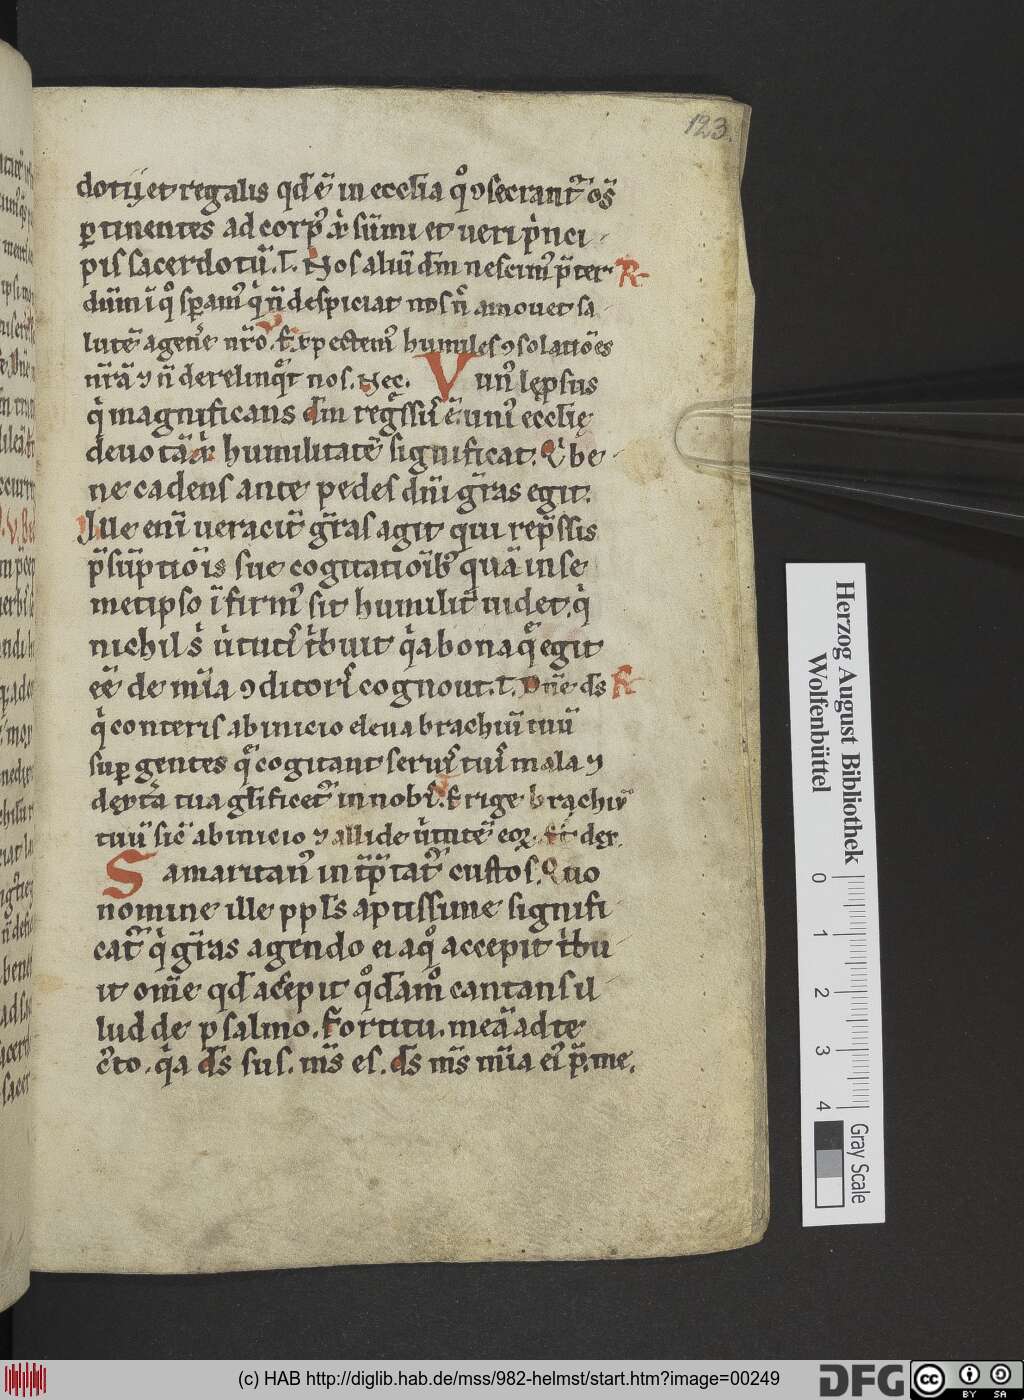 123.
dotij et regalis qđ ē in ecclia qͦ ꝯsecrant᷑ oēs
ꝑtinentes ad corpꝰ xp̄i sūmi et ueri pͥnci
pis sacerdotū. I. Nos aliū dm̄ nescimꝰ p̄ter R
dūm ī qͦ sꝑamꝰ qͥ n̄ despiciat nos n̄ amouet sa
lutē a genere nr̄o. V. Expectemꝰ humiles ꝯsolatiōes
nr̄ā ⁊ n̄ derelinqͣt nos. Nec. Vnꝰ lepsus
qͥ magnificans dm̄ regressus ē unꝰ ecclię
deuotā xp̄i humilitatē significat. Qͥ be
ne cadens ante pedes dn̄i gr̄as egit.
Ille enī ueracit̄ gr̄as agit qui rep̄ssis
p̄sūptiōis sue cogitatiōibꝰ quā in se
metipso īfirmꝰ sit humilit̄ uidet. qͥ
nichil sͥ uͥtutis tͥbuit qͥa bona q̄ egit
eē de mīa ꝯditoris cognouit. I. Dn̄e ds̄ R
qͥ conteris ab inicio eleua brachiū tuū
suꝑ gentes q̄ cogitant seruis tuis mala ⁊
dext̄a tua gl̄ificet᷑ in nobis. V. Erige brachiū
tuū sic̄ ab inicio ⁊ allide uͥtutē eoꝝ. Et dex.
Samaritanꝰ int̄p̄tat᷑ custos. Quo
nomine ille ppl̄s aptissime signifi
cat᷑ qͥ gr̄as agendo ei a qͦ accepit tͥbu
it om̄e qđ accepit qͦđamͦ cantans il
lud de psalmo. Fortitu. meā ad te
c̄to. qͥa ds̄ sus. m̄s es. ds̄ m̄s mīa eiꝰ p̄. me.
Herzog August Bibliothek
Wolfenbüttel
0 1 2 3 4
Gray Scale
(c) HAB http://diglib.hab.de/mss/982-helmst/start.htm?image=00249
DFG
cc
BY SA